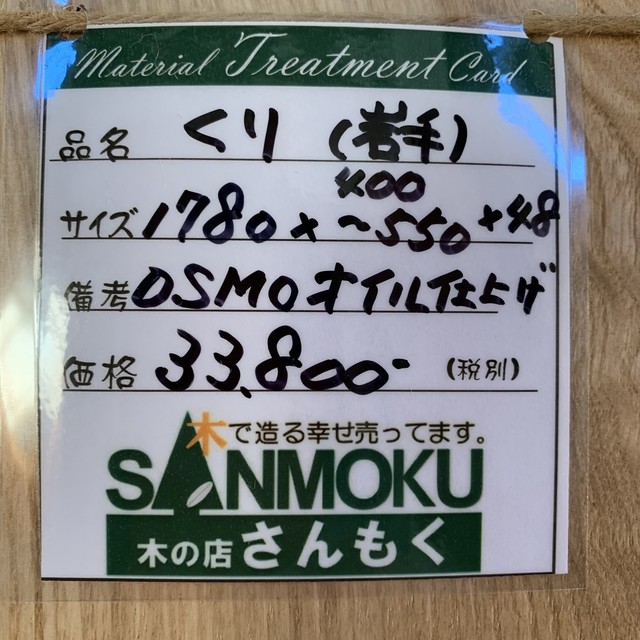 Material Treatment Card
品名 くり (岩手)
400
サイズ 1780×~550×48
備考 OSMOオイル仕上げ
価格 33,800- (税別)
木で造る幸せ売ってます。
SANMOKU
木の店 さんもく